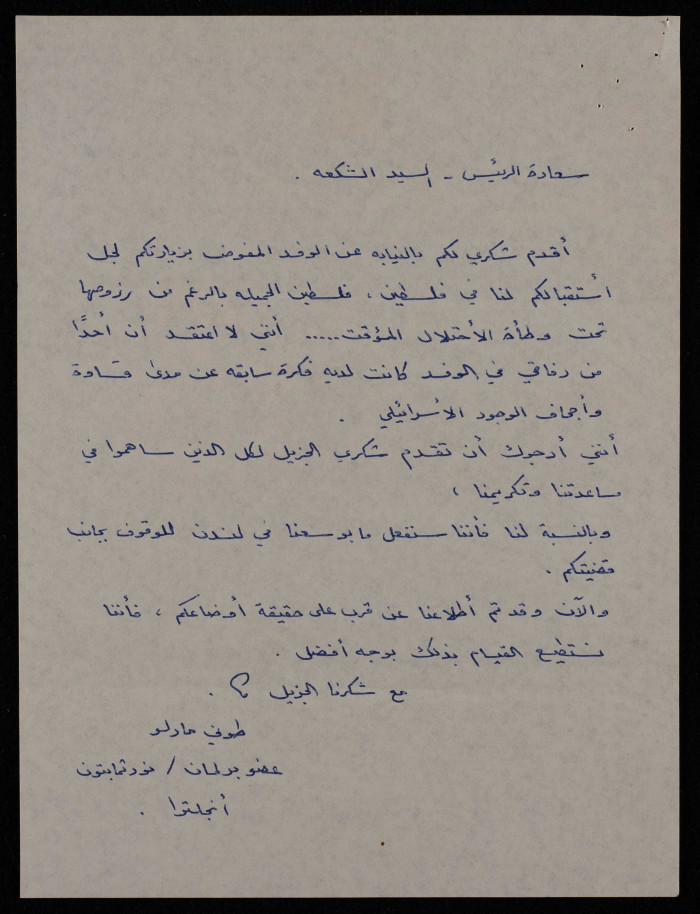 سعادة الرئيس - السيد الشكعه .
أقدم شكري لكم بالنيابه عن الوفد المفوض بزيارتكم لجل
أستقبالكم لنا في فلسطين ، فلسطين الجميله بالرغم من رزوحها
تحت وطأة الأحتلال المؤقت..... أنني لا اعتقد أن أحدًا
من رفاقي في الوفد كانت لديه فكرة سابقه عن مدى قساوة
وأجحاف الوجود الأسرائيلي .
أنني أرجوك أن تقدم شكري الجزيل لكل الذين ساهموا في
مساعدتنا وتكريمنا ،
وبالنسبة لنا فأننا سنفعل ما بوسعنا في لندن للوقوف بجانب
قضيتكم .
والآن وقد تم أطلاعنا عن قرب على حقيقة أوضاعكم ، فأننا
نستطيع القيام بذلك بوجه أفضل .
مع شكرنا الجزيل .
طوني مارلو
عضو برلمان / نورثمابتون
أنجلترا .